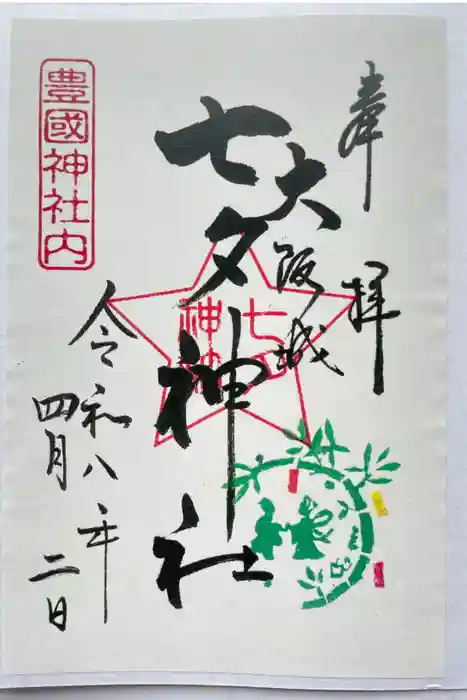 奉拝
大阪城
七夕神社
七夕神社
豊國神社内
令和八年
四月二日